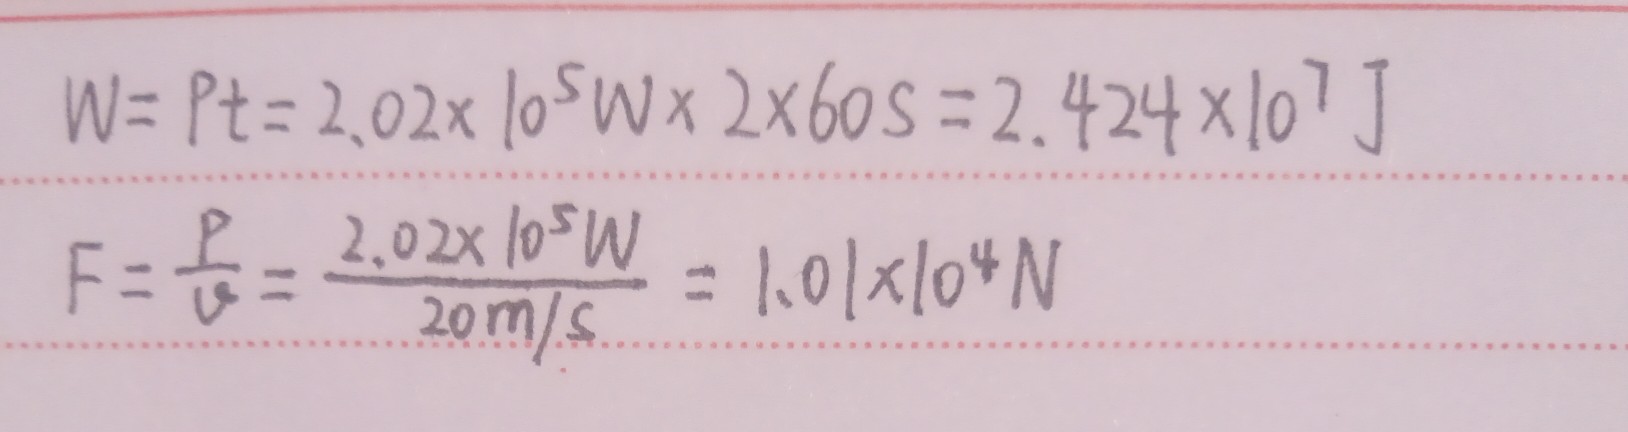 W = Pt = 2.02×10⁵W × 2×60s = 2.424×10⁷J
F = P/v = 2.02×10⁵W/20m/s = 1.01×10⁴N